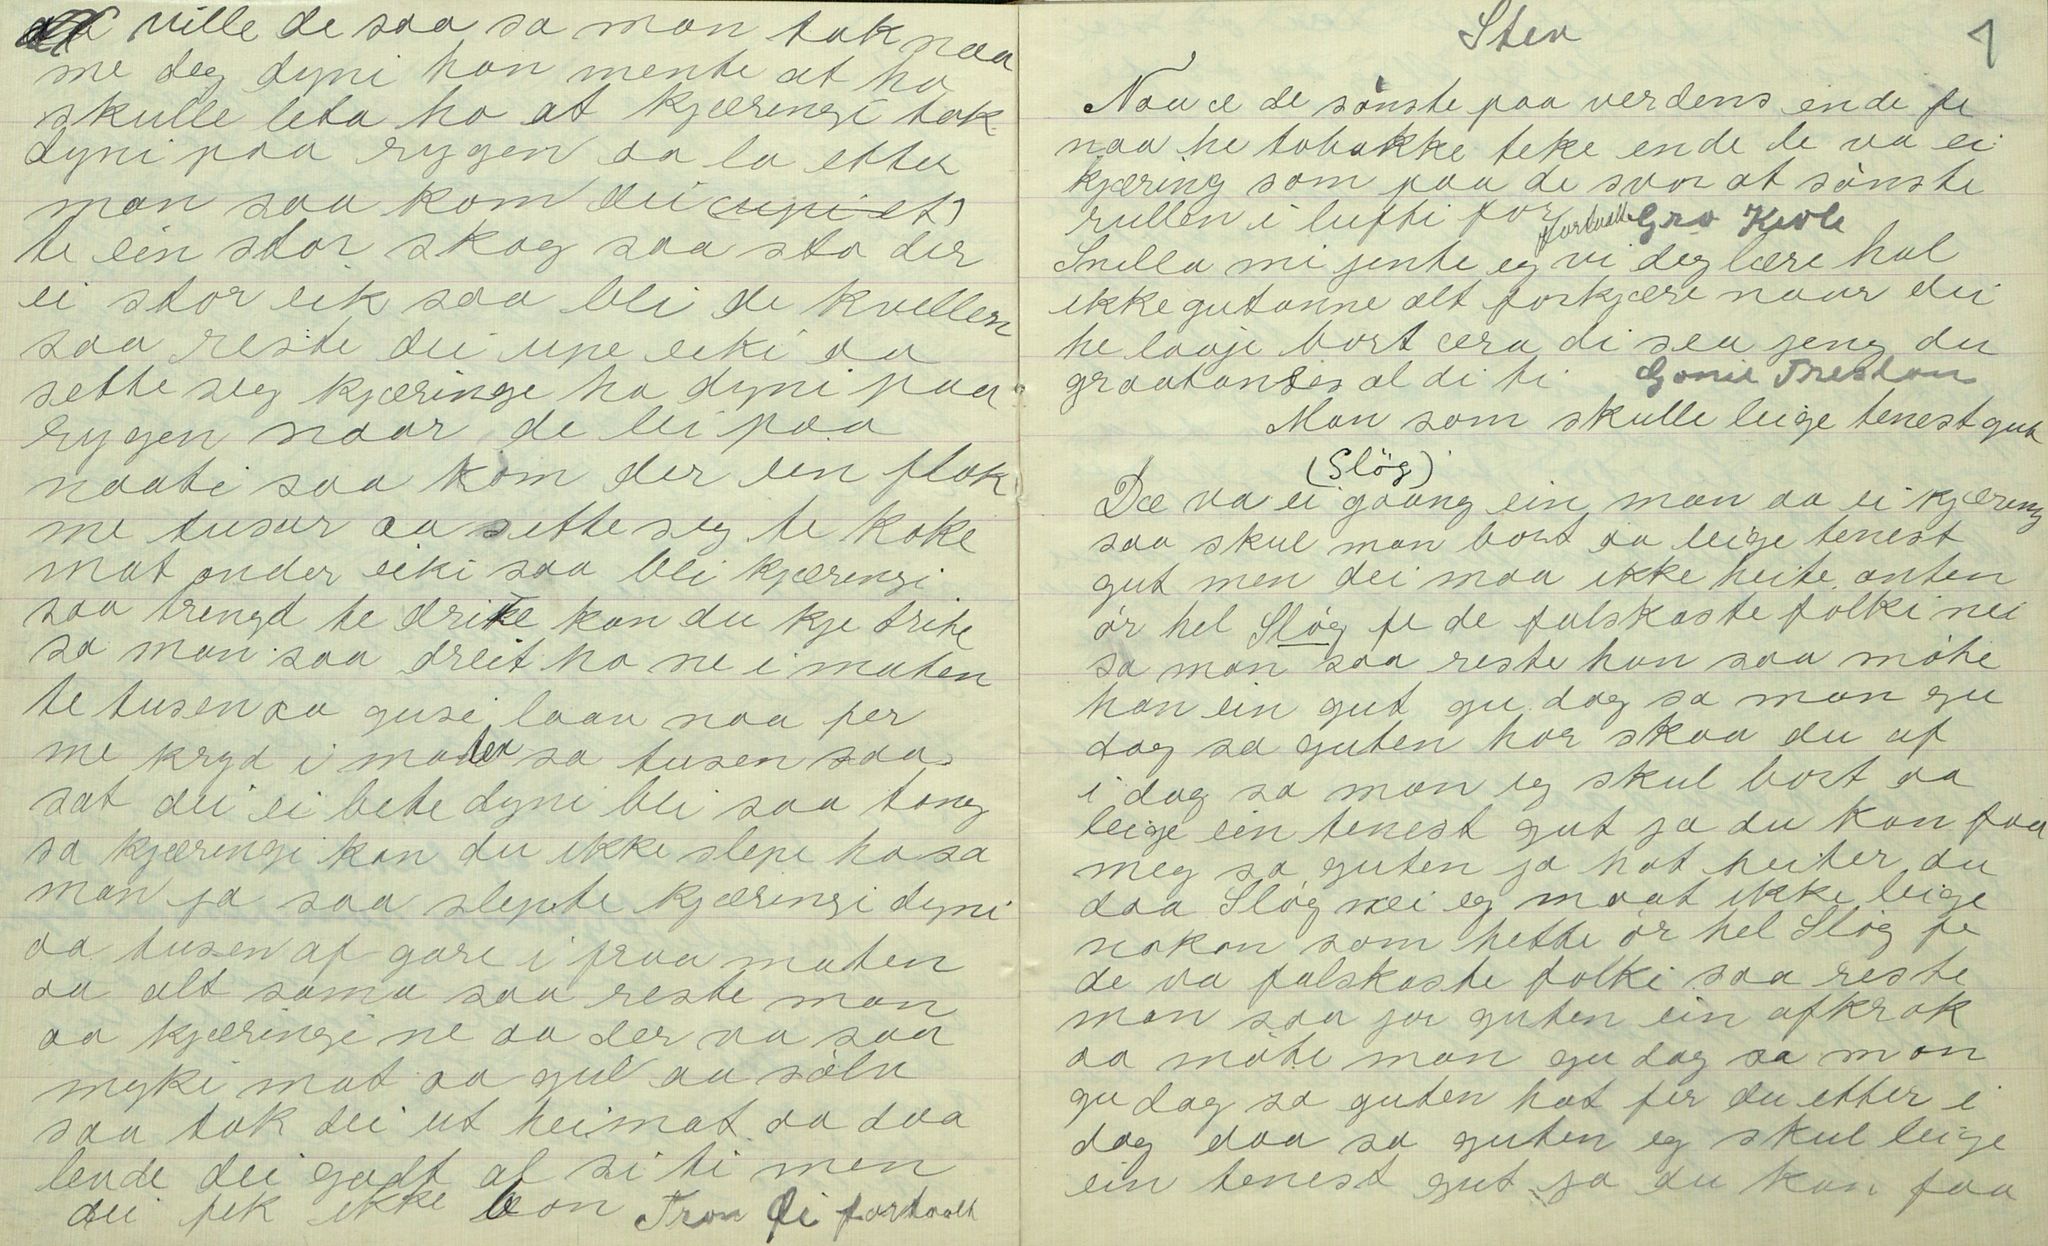 ville de saa sa man tak naa
me deg dyni han mente at ho
skulle leta ho at kjæringi tok
dyni paa rygen aa la etter
man saa kom dei
te ein stor skog saa sto der
ei stor eik saa blei de kvellen
saa reste dei upe eiki aa
sette seg kjæringe ha dyni paa
rygen naar de lei paa
naati saa kom der ein flok
me tusar aa sette seg te koke
mat onder eiki saa blei kjæringi
saa trengd te drite kan du kje drite
sa man saa dreit ho ne i maten
te tusen aa gusé laan naa per
me kryd i maten sa tusen saa
sat dei ei bete dyni blei saa tong
sa kjæringi kan du ikke slepe ho sa
man ja saa slepte kjæringi dyni
aa tusen af gare i fraa maten
aa alt sama saa reste man
aa kjæringi ne aa der va saa
myki mat aa gul aa sølv
saa tok dei ut heimat aa daa
levde dei godt al si ti men
dei fek ikke bon Tron Li fortaalt
Stev
1
Naa æ de sønste paa verdens ende fe
naa he tobakke teke ende de va ei
kjæring som paa de svor at sønste
rullen i lufti for fortaalt Gro Kvole
Snilla mi jente eg vi deg lære hal
ikke gutanne alt forkjære naar dei
he laaje bort æra di sea jeng du
graatandes al di ti
Man som skulle leige tenestgut
(Slög)
Dæ va ei gaang ein man aa ei kjæring
saa skul man bort aa leige tenest
gut men dei maa ikke heite anten
ör hel Slög fe de falskaste folki nei
sa man saa reste han saa møte
han ein gut gu dag sa man gu
dag sa guten hor skaa du af
i dag sa man eg skul bort aa
leige ein tenest gut ja du kan faa
meg sa guten ja hot heiter du
daa Slög nei eg maat ikke leige
nokon som hette ör hel Slög fe
de va falskaste folki saa reste
man saa jor guten ein afkrok
aa møte man gu dag sa man
gu dag sa guten hot fer du etter i
dag daa sa guten eg skul leige
ein tenest gut ja du kan faa